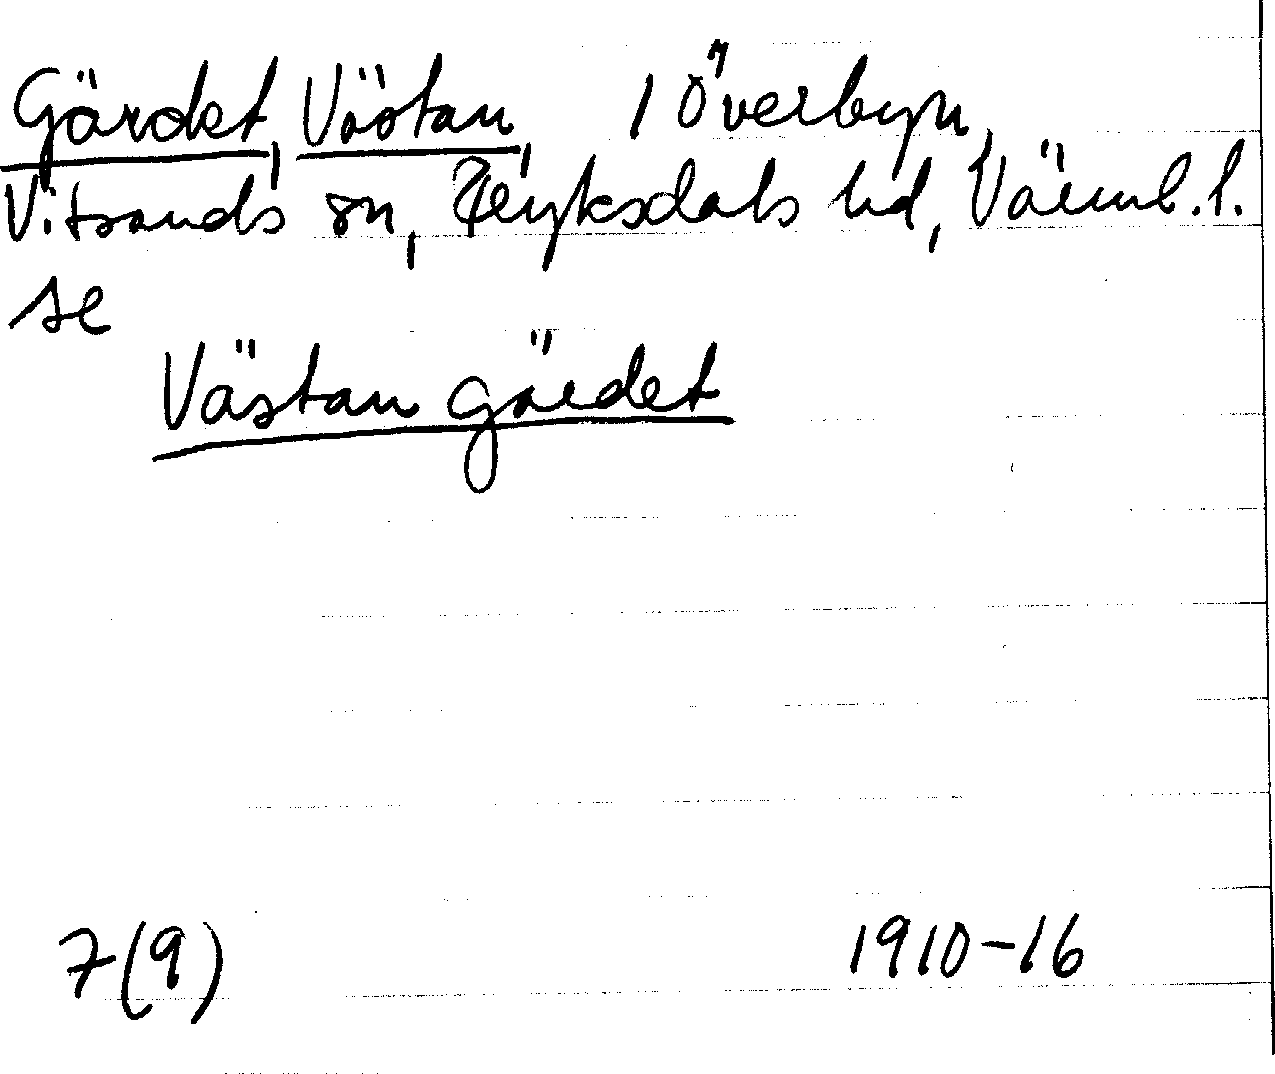 Gärdet, Västan, i Överbyn,
Vitsands sn, Fryksdals hd, Värml. l.
se
Västan gärdet
7(9) 1910-16